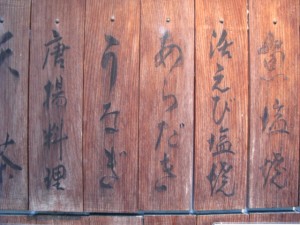 塩焼
活えび塩焼
あらだき
うなぎ
唐揚料理
茶